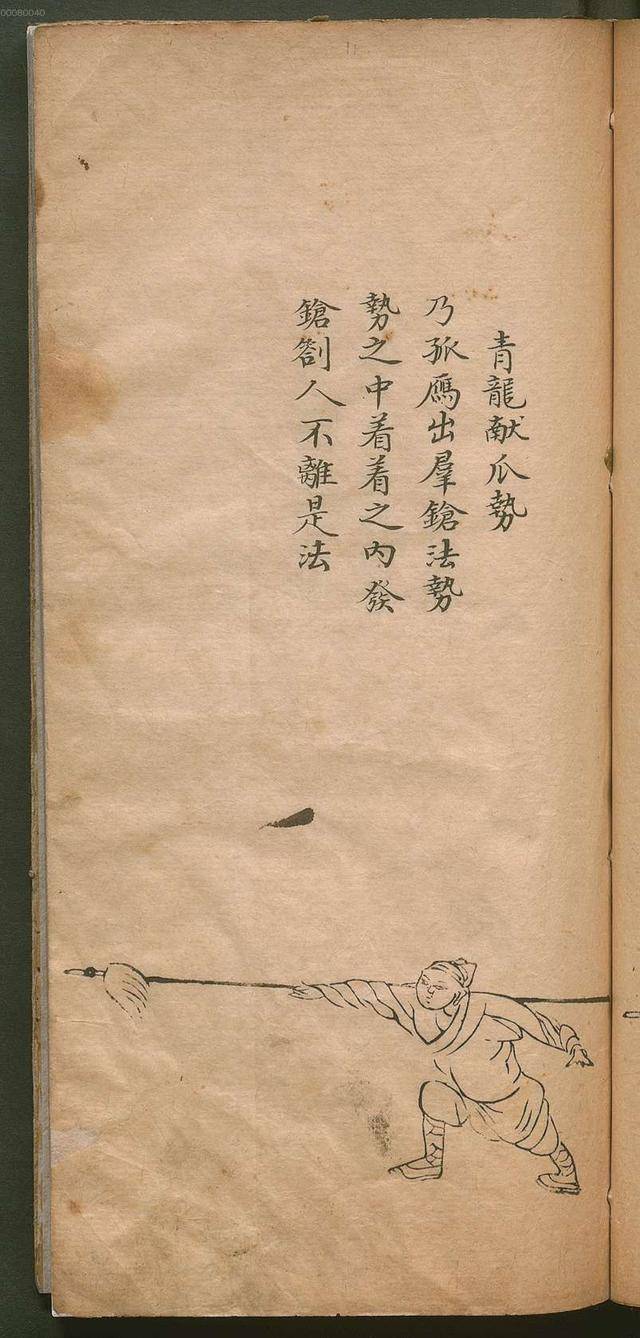 00080040
青龍献爪勢
乃孤鴈出羣鎗法勢
勢之中着着之內發
鎗劄人不離是法